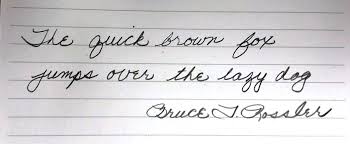 The quick brown fox
jumps over the lazy dog
Bruce T. Rossler